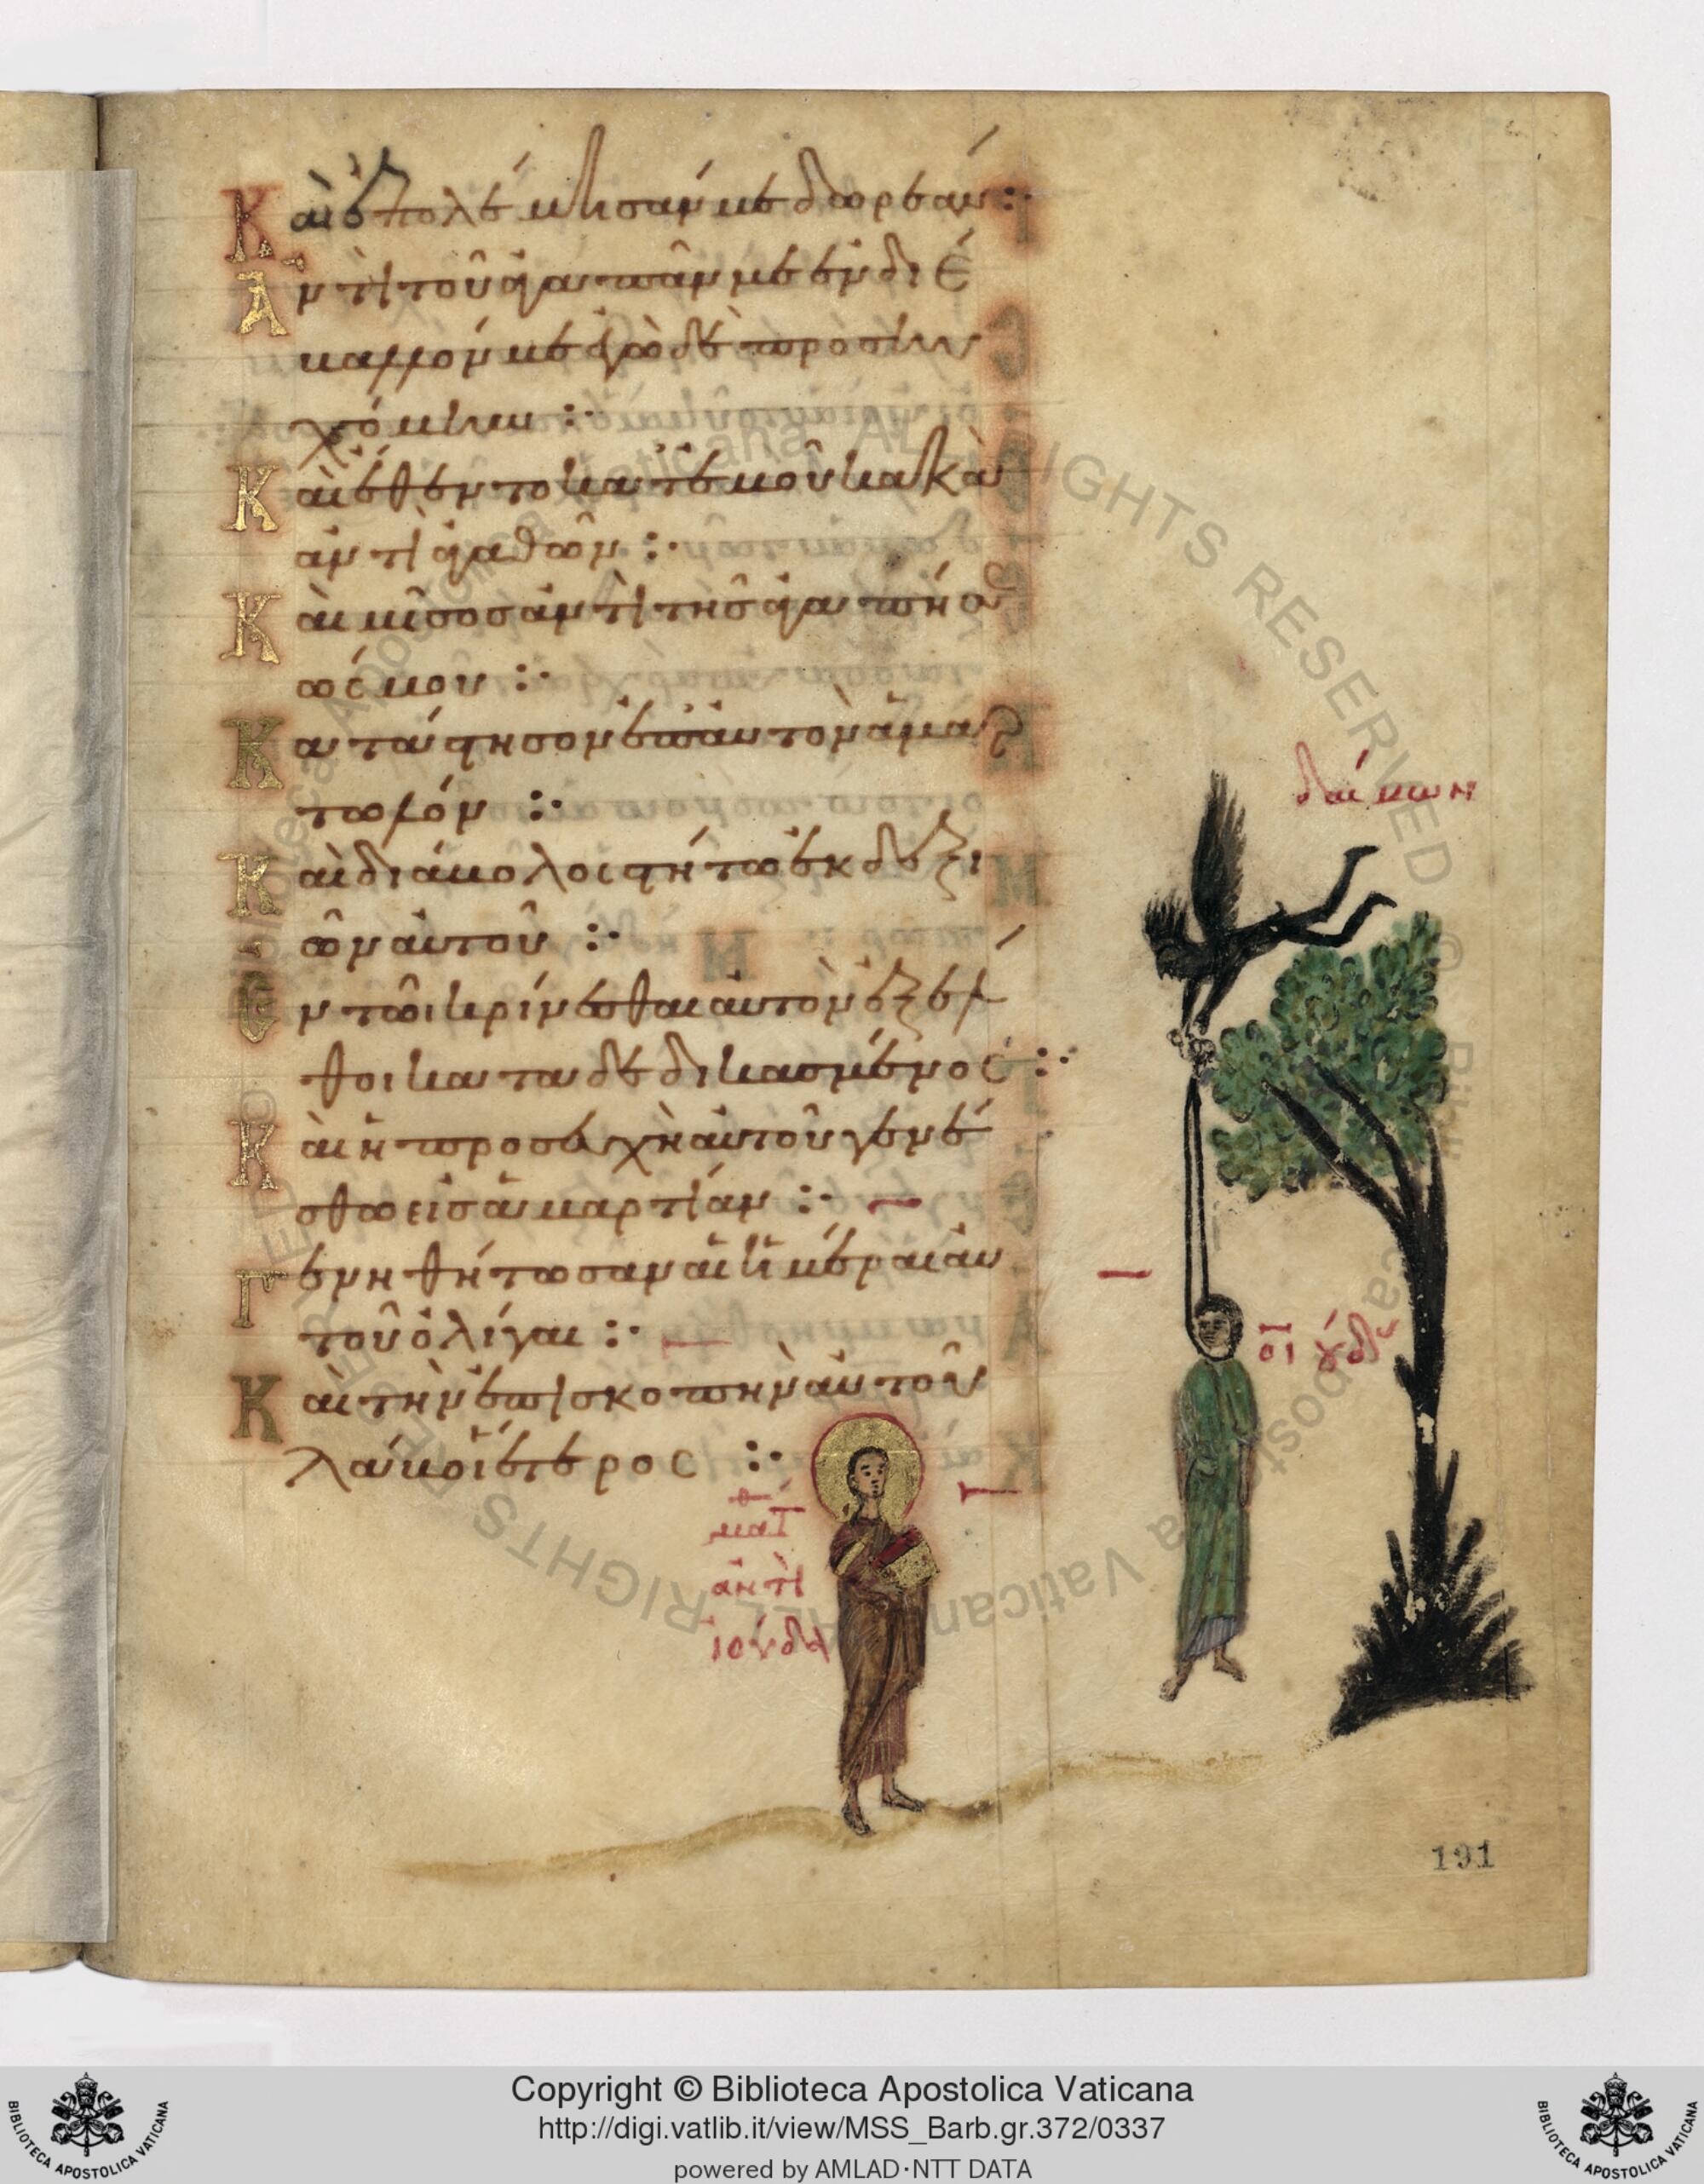 Καὶ ἐπολέμησάν με δωρεάν :·
Ἀντὶ τοῦ ἀγαπᾶν με ἐνδιέ
βαλλόν με ἐγὼ δὲ προσηυ
χόμην :·
Καὶ ἔθεντο κατ' ἐμοῦ κακὰ
ἀντὶ ἀγαθῶν :·
Καὶ μῖσος ἀντὶ τῆς ἀγαπήσε
ώς μου :·
Κατάστησον ἐπ' αὐτὸν ἁμαρ
τωλόν :·
Καὶ διάβολος στήτω ἐκ δεξι
ῶν αὐτοῦ :·
Ἐν τῶι κρίνεσθαι αὐτὸν ἐξέλ
θοι καταδεδικασμένος :·
Καὶ ἡ προσευχὴ αὐτοῦ γενέ
σθω εἰς ἁμαρτίαν :·
Γενηθήτωσαν αἱ ἡμέραι αὐ
τοῦ ὀλίγαι :·
Καὶ τὴν ἐπισκοπὴν αὐτοῦ
λάβοι ἕτερος :·
δαίμων
ὁ ἰούδ
ματ
ἀντὶ
ἰούδα
191
Copyright © Biblioteca Apostolica Vaticana
http://digi.vatlib.it/view/MSS_Barb.gr.372/0337
powered by AMLAD·NTT DATA
BIBLIOTECA APOSTOLICA VATICANA
BIBLIOTECA APOSTOLICA VATICANA